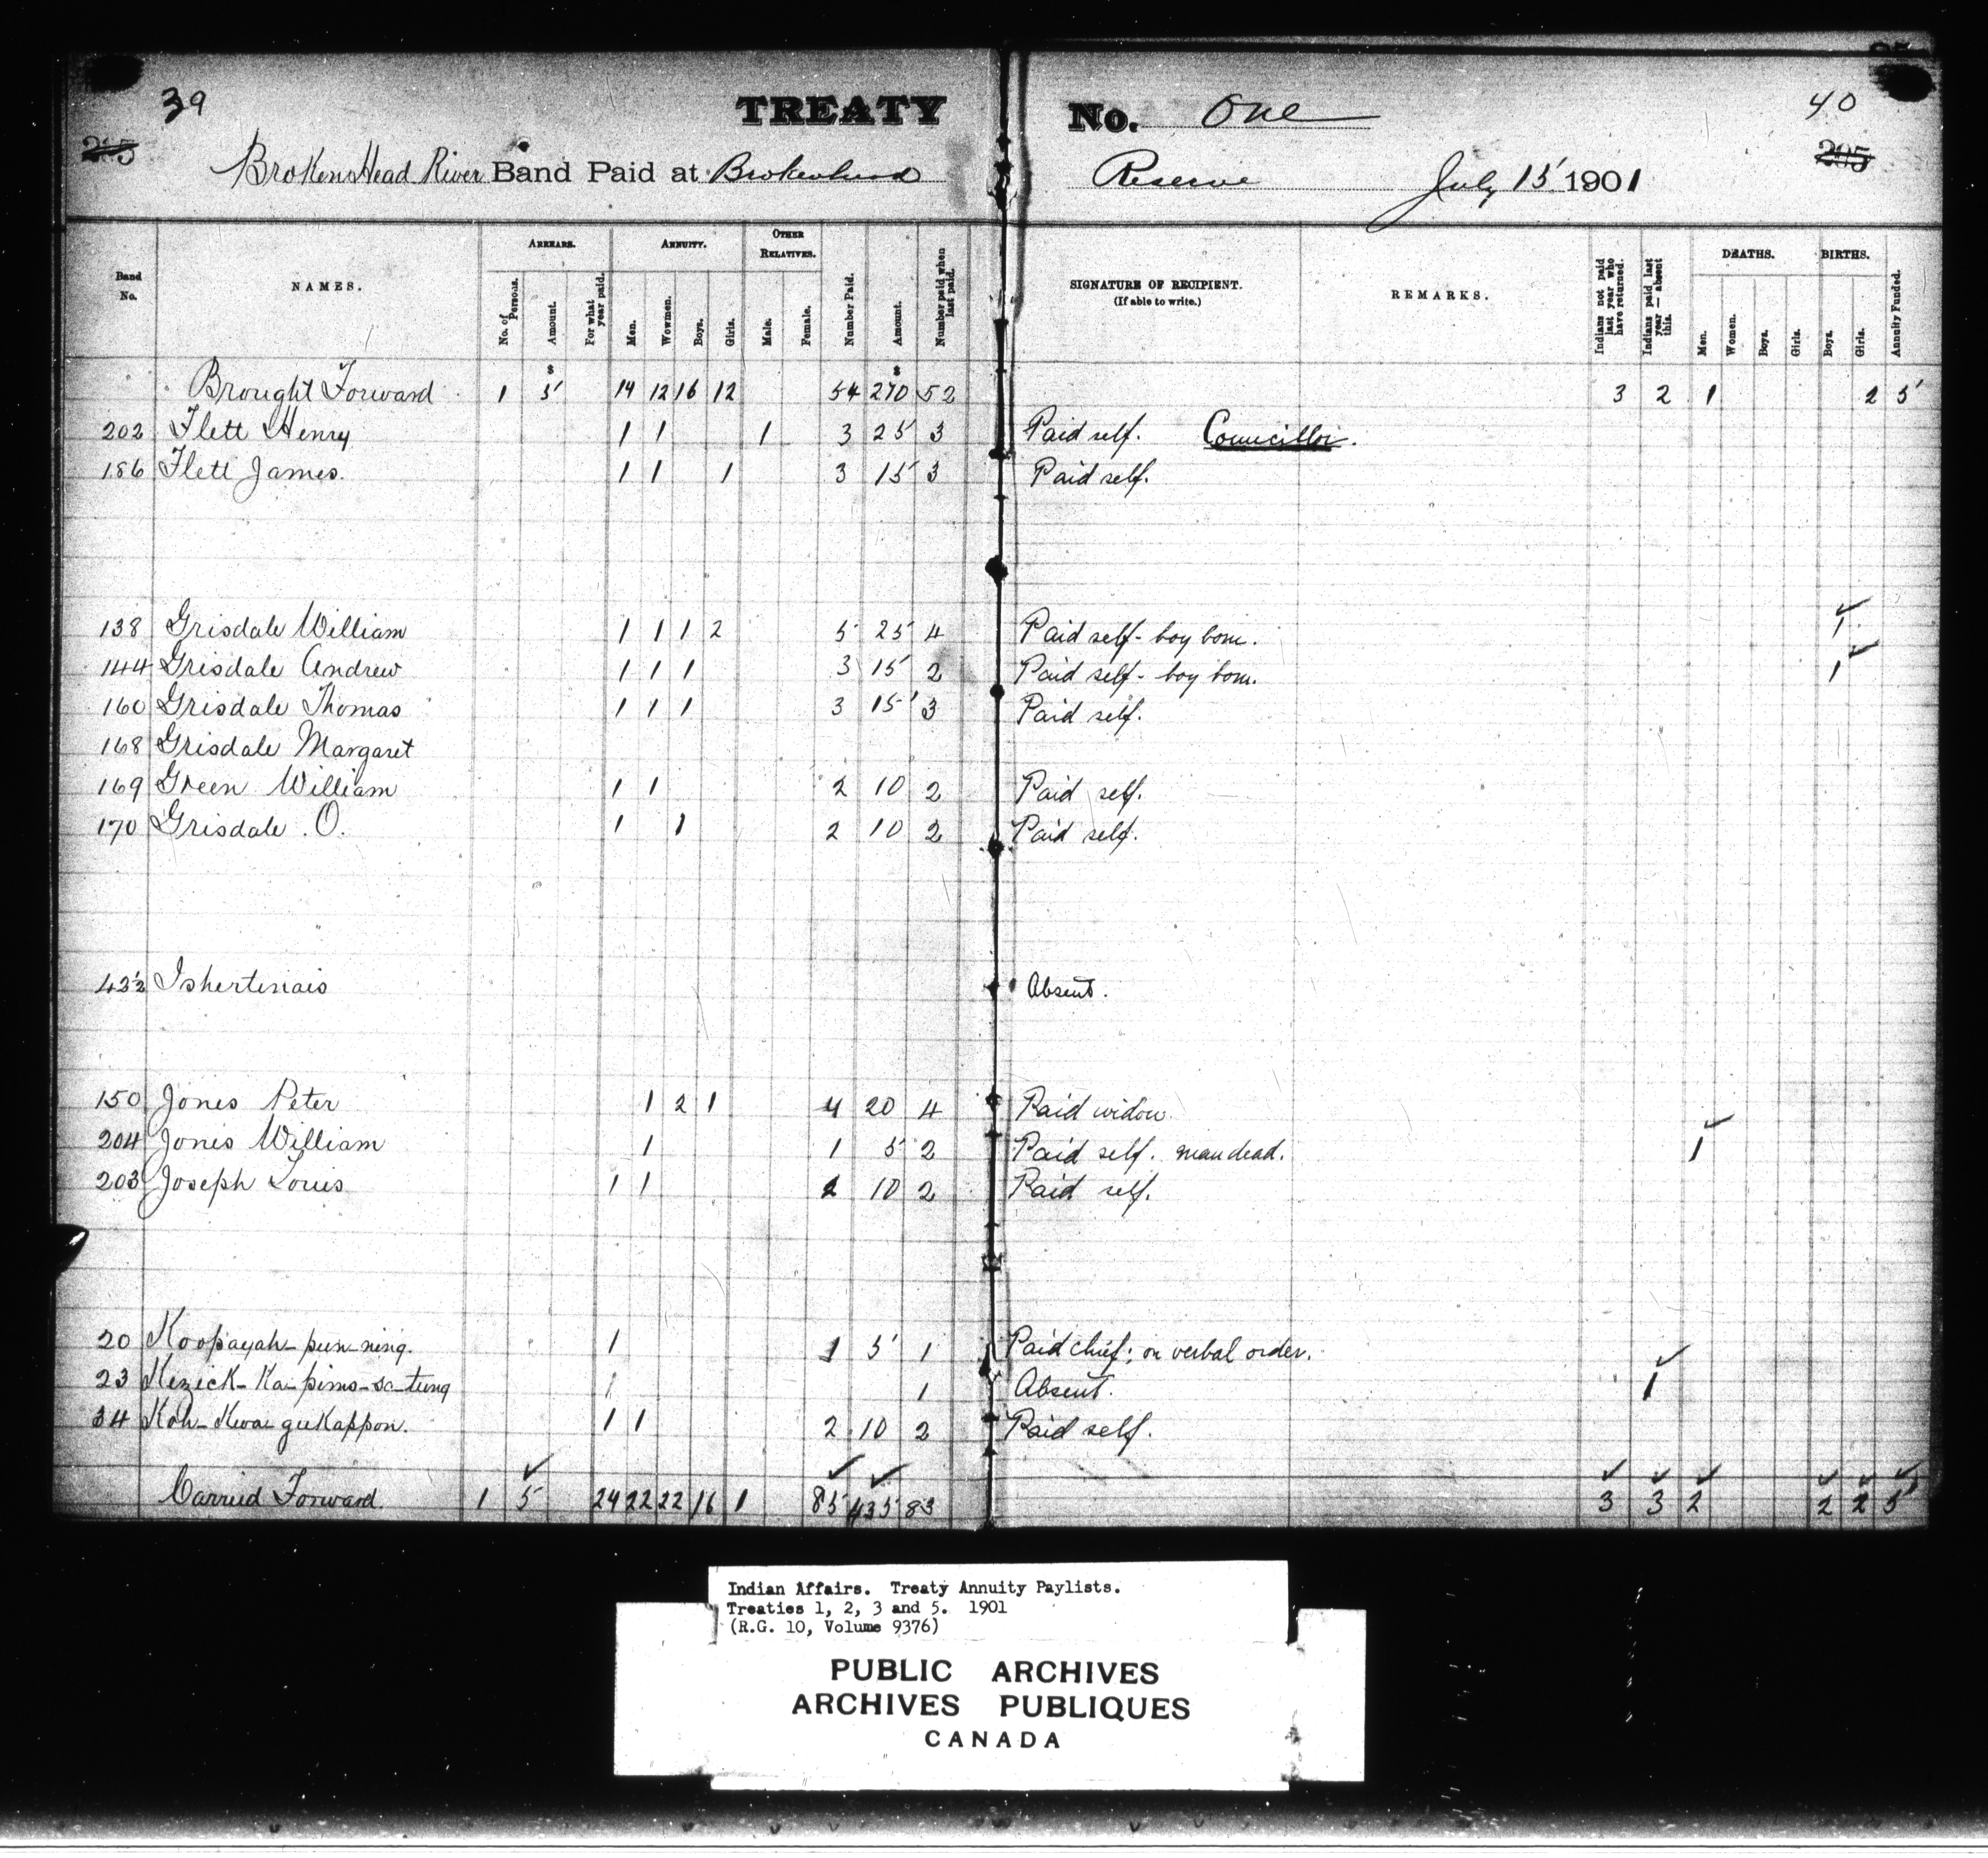 39 TREATY No. One 40
BrokenHead River Band Paid at Brokenhead Reserve July 15 1901
Band No. NAMES. ARREARS. No. of Persons. Amount. For what year paid. ANNUITY. Men. Wowmen. Boys. Girls. OTHER RELATIVES. Male. Female. Number Paid. Amount. Number paid when last paid. SIGNATURE OF RECIPIENT. (If able to write.) REMARKS. Indians not paid last year who have returned. Indians paid last year — absent this. DEATHS. Men. Women. Boys. Girls. BIRTHS. Boys. Girls. Annuity Funded.
Brought Forward 1 $ 5 14 12 16 12 54 $ 270 52 3 2 1 2 5
202 Flett Henry 1 1 1 3 25 3 Paid self. Councillor.
186 Flett James. 1 1 1 3 15 3 Paid self.
138 Grisdale William 1 1 1 2 5 25 4 Paid self - boy born. 1
144 Grisdale Andrew 1 1 1 3 15 2 Paid self - boy born. 1
160 Grisdale Thomas 1 1 1 3 15 3 Paid self.
168 Grisdale Margaret
169 Green William 1 1 2 10 2 Paid self.
170 Grisdale . O. 1 1 2 10 2 Paid self.
Ishertinais Absent.
150 Jones Peter 1 2 1 4 20 4 Paid widow.
204 Jones William 1 1 5 2 Paid self. man dead. 1
203 Joseph Louis 1 1 2 10 2 Paid self.
20 Koopayah-pun-ning. 1 1 5 1 Paid chief; on verbal order.
23 Kezick-Ka-pims-sa-tung 1 1 Absent. 1
34 Koh-Kwa-geeKappon. 1 1 2 10 2 Paid self.
Carried Forward. 1 5 24 22 22 16 1 85 435 83 3 3 2 2 2 5
Indian Affairs. Treaty Annuity Paylists.
Treaties 1, 2, 3 and 5. 1901
(R.G. 10, Volume 9376)
PUBLIC ARCHIVES
ARCHIVES PUBLIQUES
CANADA